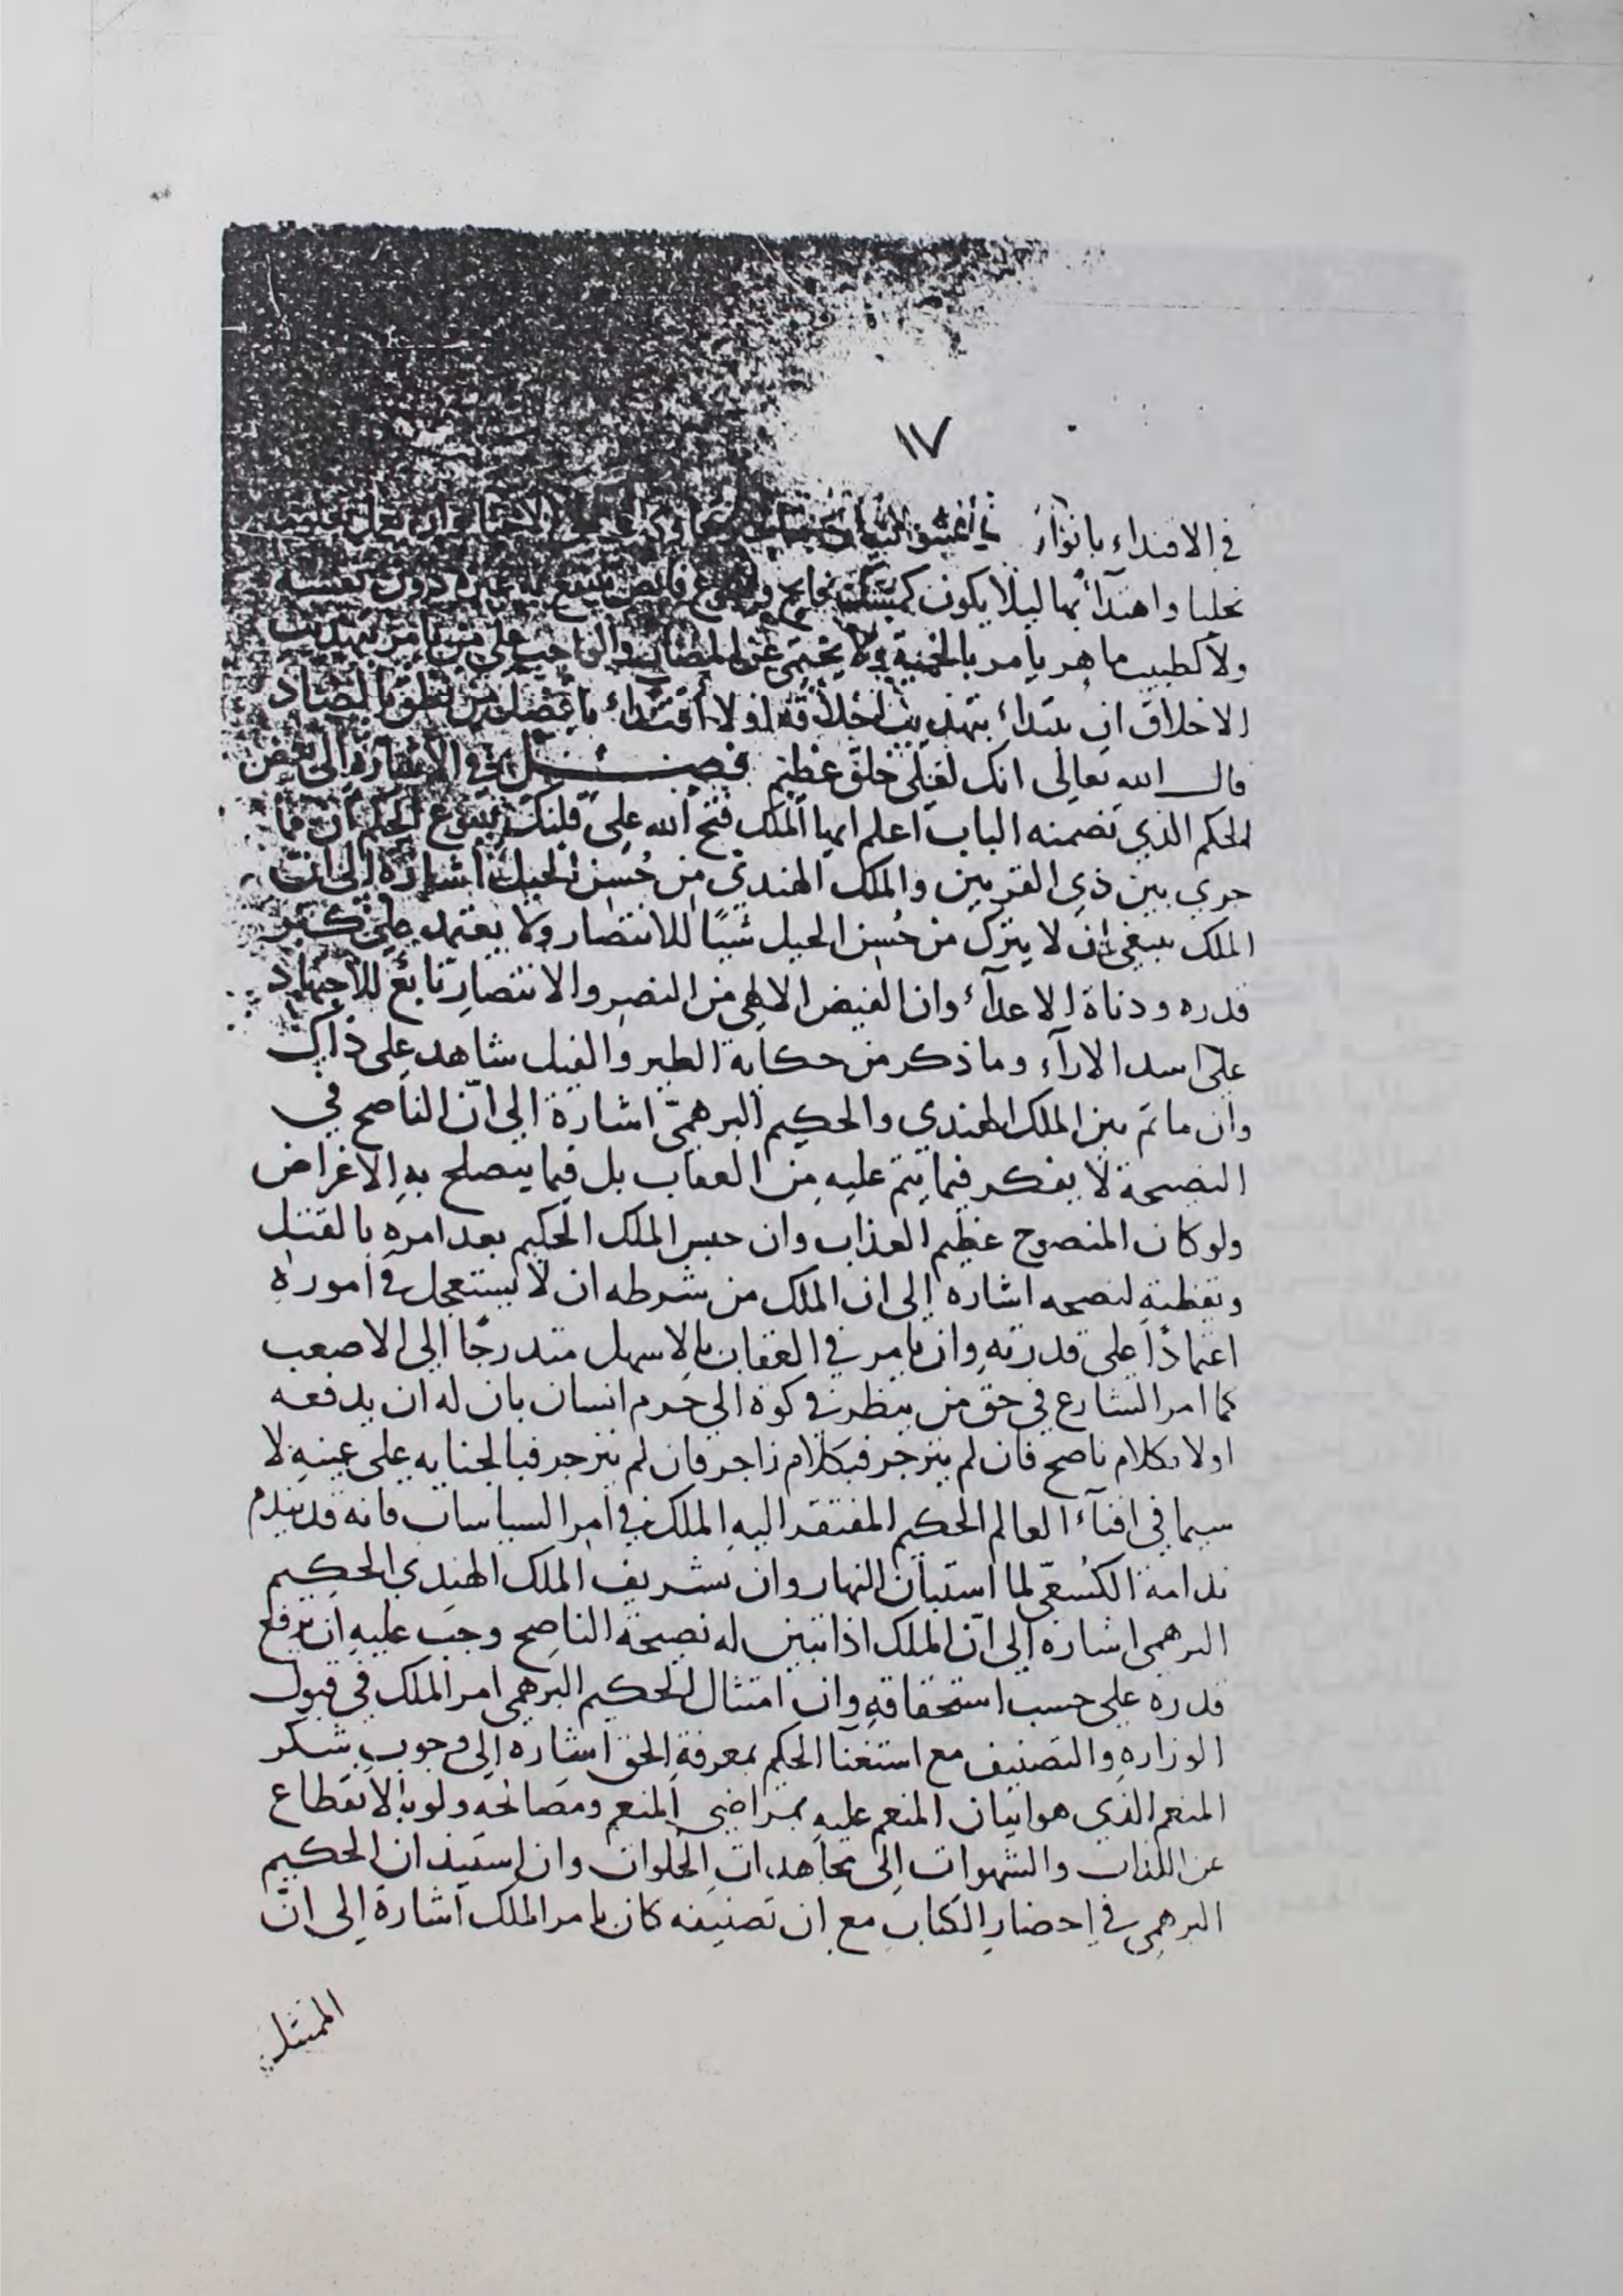 ١٧
في الاقتداء بانوار
تحليا واهتداء بها ليلا يكون دون نفسه
ولا كطبيب ماهر يامر بالحمية ولا يحتمي عن المضار والواجب على من يامر بتهذيب
الاخلاق ان يبتداء بتهذيب اخلاقه اولا اقتداء بافضل من نطق بالضاد
قال الله تعالى انك لعلى خلق عظيم فصل في الاشارة الى بعض
الحكم الذي تضمنه الباب اعلم ايها الملك فتح الله على قلبك ينبوع الحكم ان ما
جرى بين ذي القرنين والملك الهندي من حسن الحيل اشارة الى ان
الملك ينبغي ان لا يترك من حسن الحيل شيئا للانتصار ولا يعتمد على كبر
قدره ودناة الاعداء وان الفيض الالهي من النصر والانتصار تابع للاجتهاد
على اسد الاراء وما ذكر من حكاية الطير والفيل شاهد على ذلك
وان ما تم بين الملك الهندي والحكيم البرهمي اشارة الى ان الناصح في
النصيحة لا يفكر فيما يتم عليه من العقاب بل فيما ينصلح به الاغراض
ولو كان المنصوح عظيم العذاب وان حبس الملك الحكيم بعد امره بالقتل
وتفطنه لنصحه اشاره الى ان الملك من شرطه ان لا يستعجل في اموره
اعتمادا على قدرته وان يامر في العقاب بالاسهل متدرجا الى الاصعب
كما امر الشارع في حق من ينظر في كوة الى حرم انسان بان له ان يدفعه
اولا بكلام ناصح فان لم ينزجر فبكلام زاجر فان لم ينزجر فبالجنايه على عينه لا
سيما في افناء العالم الحكيم المفتقر اليه الملك في امر السياسات فانه قد يندم
ندامة الكسعي لما استبان النهار وان تشريف الملك الهندي الحكيم
البرهمي اشاره الى ان الملك اذا تبين له نصيحة الناصح وجب عليه ان يرفع
قدره على حسب استحقاقه وان امتثال الحكيم البرهمي امر الملك في قبول
الوزاره والتصنيف مع استغنا الحكيم بمعرفة الحق اشاره الى وجوب شكر
المنعم الذي هو اتيان المنعم عليه بمراضي المنعم ومصالحه ولو بالانقطاع
عن اللذات والشهوات الى مجاهدات الخلوات وان استيذان الحكيم
البرهمي في احضار الكتاب مع ان تصنيفه كان بامر الملك اشارة الى ان
الممتثل